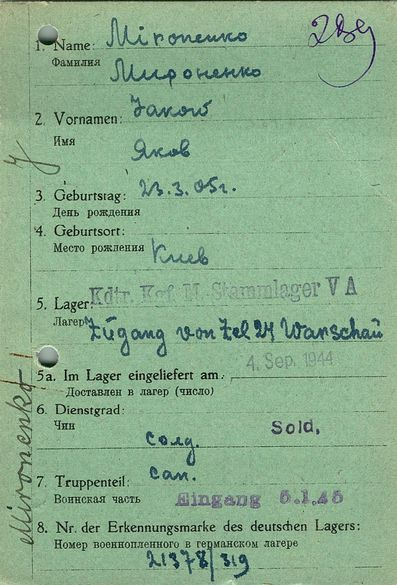 289
1. Name: Mironenko
Фамилия
Мироненко
2. Vornamen: Jakow
Имя
Яков
3. Geburtstag: 23.3.05 г.
День рождения
4. Geburtsort:
Место рождения Киев
Kdtr. Kgf. M. Stammlager V A
5. Lager:
Лагерь Zugang von Zel 24 Warschau
4. Sep. 1944
5a. Im Lager eingeliefert am:
Доставлен в лагерь (число)
6. Dienstgrad:
Чин
солд. Sold.
7. Truppenteil: сап.
Воинская часть Eingang 5.1.45
8. Nr. der Erkennungsmarke des deutschen Lagers:
Номер военнопленного в германском лагере
21378/319
Mironenko